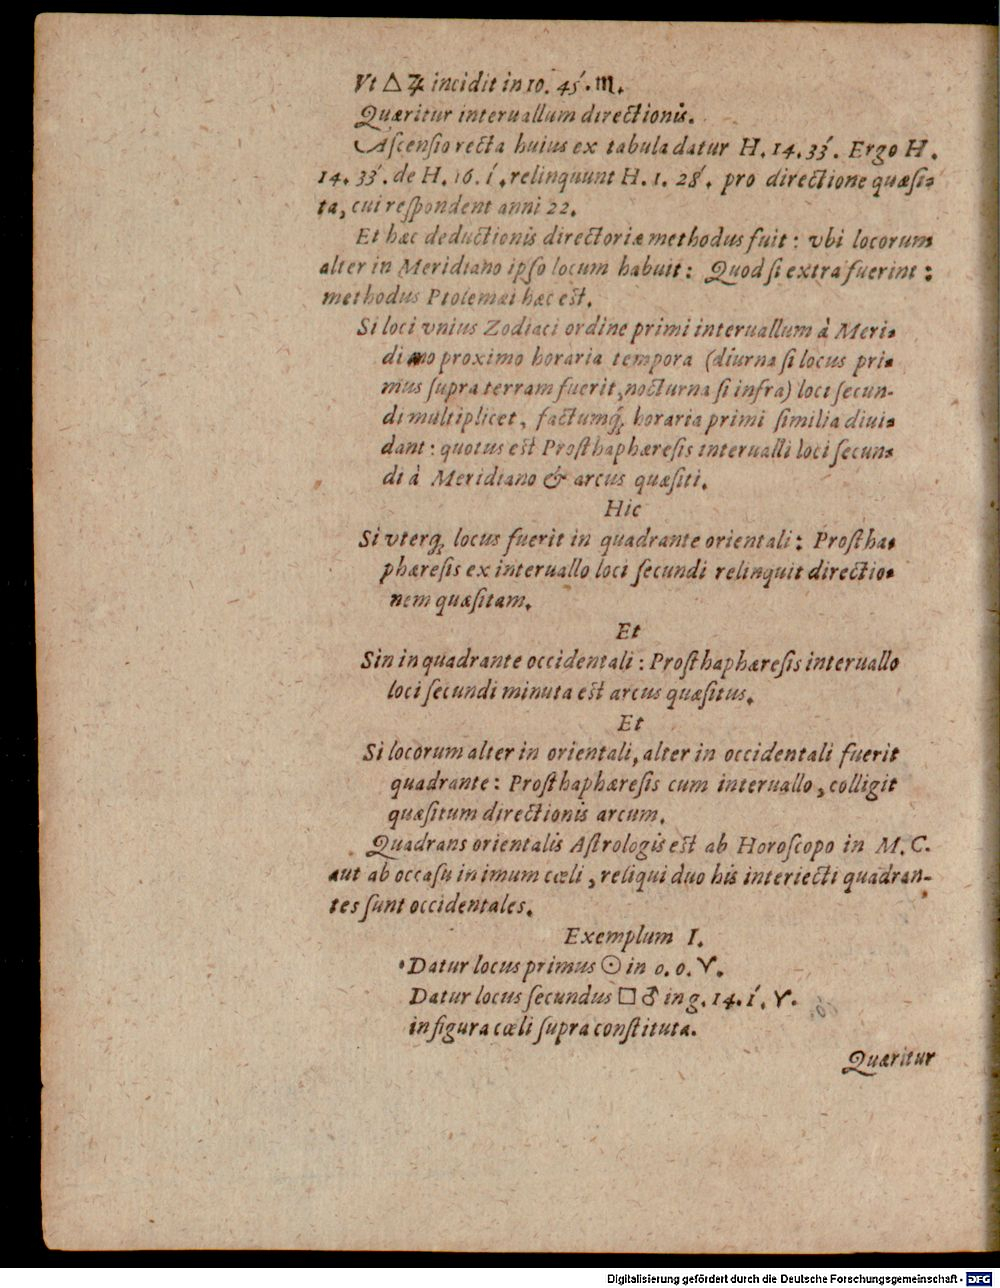 Vt △ ♃ incidit in 10. 45́. ♏.
Quæritur interuallum directionis.
Aſcenſio recta huius ex tabula datur H. 14. 33́. Ergo H.
14. 33́. de H. 16. í. relinquunt H. 1. 28́. pro directione quæſi-
ta, cui reſpondent anni 22.
Et hæc deductionis directoriæ methodus fuit: vbi locorum
alter in Meridiano ipſo locum habuit: Quod ſi extra fuerint:
methodus Ptolemæi hæc est.
Si loci vnius Zodiaci ordine primi interuallum à Meri-
diano proximo horaria tempora (diurna ſi locus pri-
mus ſupra terram fuerit, nocturna ſi infra) loci ſecun-
di multiplicet, factumq́ꝫ horaria primi ſimilia diui-
dant: quotus est Proſthaphæreſis interualli loci ſecun-
di à Meridiano & arcus quæſiti.
Hic
Si vterqꝫ locus fuerit in quadrante orientali: Proſtha-
phæreſis ex interuallo loci ſecundi relinquit directio-
nem quæſitam.
Et
Sin in quadrante occidentali: Proſthaphæreſis interuallo
loci ſecundi minuta est arcus quæſitus.
Et
Si locorum alter in orientali, alter in occidentali fuerit
quadrante: Proſthaphæreſis cum interuallo, colligit
quæſitum directionis arcum.
Quadrans orientalis Aſtrologis est ab Horoſcopo in M. C.
aut ab occaſu in imum cœli, reliqui duo his interiecti quadran-
tes ſunt occidentales.
Exemplum I.
Datur locus primus ☉ in 0. 0. ♈.
Datur locus ſecundus □ ♂ in g. 14. í. ♈.
in figura cœli ſupra conſtituta.
Quæritur
Digitalisierung gefördert durch die Deutsche Forschungsgemeinschaft - DFG